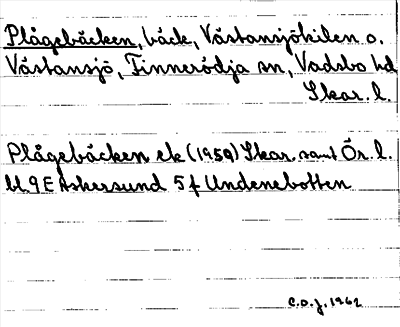 Plågebäcken, bäck, Västansjökilen o.
Västansjö, Finnerödja sn, Vadsbo hd
Skar. l.
Plågebäcken ek (1959) Skar. samt Ör. l.
bl. 9E Askersund 5 f Undenebotten
C.O.J. 1962